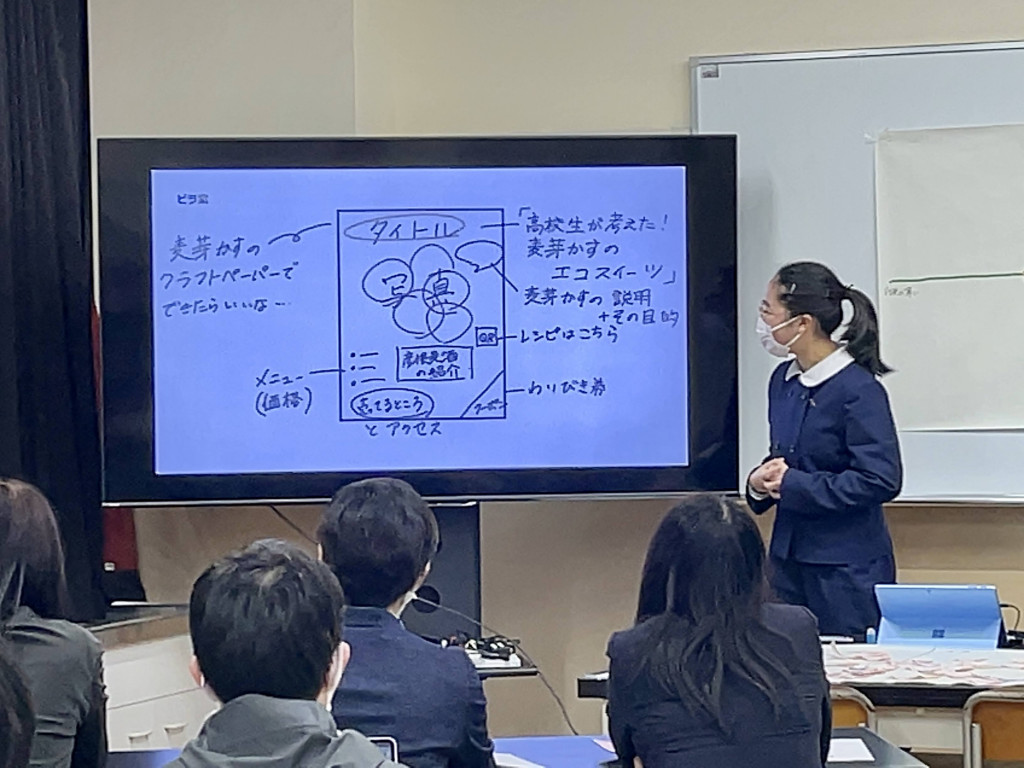 ビラ案
麦芽かすの
クラフトペーパーで
できたらいいな…
タイトル
写真
「高校生が考えた!
麦芽かすの
エコスイーツ」
麦芽かすの説明
+その目的
QR
レシピはこちら
メニュー
(価格)
彦根麦酒
の紹介
売ってるところ
と アクセス
クーポン
わりびき券